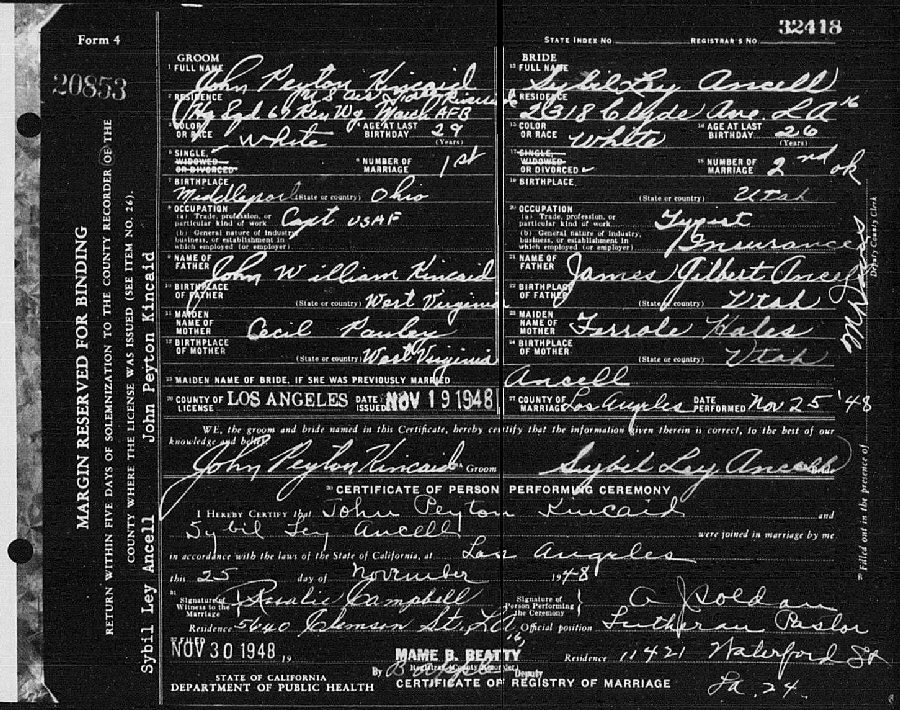 Form 4
STATE INDEX No
REGISTRAR'S No. 32418
20853
MARGIN RESERVED FOR BINDING
RETURN WITHIN FIVE DAYS OF SOLEMNIZATION TO THE COUNTY RECORDER OF THE
COUNTY WHERE THE LICENSE WAS ISSUED (SEE ITEM NO. 26).
Sybil Ley Ancell John Peyton Kincaid
GROOM
1 FULL NAME John Peyton Kincaid
2 RESIDENCE
Hq Sqd 67 Recn Wg March AFB
COLOR OR RACE White
AGE AT LAST BIRTHDAY 29 (Years)
SINGLE, WIDOWED OR DIVORCED
NUMBER OF MARRIAGE 1st
7 BIRTHPLACE Middleport (State or country) Ohio
8 OCCUPATION
(a) Trade, profession, or particular kind of work Capt USAF
(b) General nature of industry, business, or establishment in which employed (or employer)
NAME OF FATHER John William Kincaid
BIRTHPLACE OF FATHER (State or country) West Virginia
MAIDEN NAME OF MOTHER Cecil Pauley
BIRTHPLACE OF MOTHER (State or country) West Virginia
BRIDE
FULL NAME Sybil Ley Ancell
RESIDENCE 2318 Clyde Ave. LA 16
COLOR OR RACE White
AGE AT LAST BIRTHDAY 26 (Years)
SINGLE, WIDOWED OR DIVORCED
NUMBER OF MARRIAGE 2nd ok
BIRTHPLACE (State or country) Utah
OCCUPATION
(a) Trade, profession, or particular kind of work Typist
(b) General nature of industry, business, or establishment in which employed (or employer) Insurance
NAME OF FATHER James Gilbert Ancell
BIRTHPLACE OF FATHER (State or country) Utah
MAIDEN NAME OF MOTHER Hales
BIRTHPLACE OF MOTHER (State or country) Utah
Deputy County Clerk
Filled out in the presence of
MAIDEN NAME OF BRIDE, IF SHE WAS PREVIOUSLY MARRIED Ancell
COUNTY OF LICENSE LOS ANGELES DATE ISSUED NOV 19 1948
COUNTY OF MARRIAGE Los Angeles DATE PERFORMED Nov 25 '48
WE, the groom and bride named in this Certificate, hereby certify that the information given therein is correct, to the best of our
knowledge and belief
John Peyton Kincaid Groom Sybil Ley Ancell Bride
CERTIFICATE OF PERSON PERFORMING CEREMONY
I HEREBY CERTIFY that John Peyton Kincaid and
Sybil Ley Ancell were joined in marriage by me
in accordance with the laws of the State of California, at Los Angeles
this 25 day of November 1948
Signature of Witness to the Marriage Rosalie Campbell
Residence 5640 Clemson St. LA 16
Signature of Person Performing the Ceremony A J Soldan
Official position Lutheran Pastor
FILED NOV 30 1948 19
MAME B. BEATTY
Registrar (County Recorder)
By Deputy
Residence 11421 Waterford St
La. 24
STATE OF CALIFORNIA
DEPARTMENT OF PUBLIC HEALTH
CERTIFICATE OF REGISTRY OF MARRIAGE